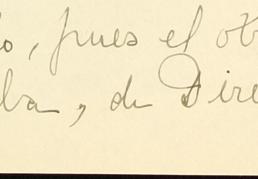 o, pues el ob
ba, de Dire